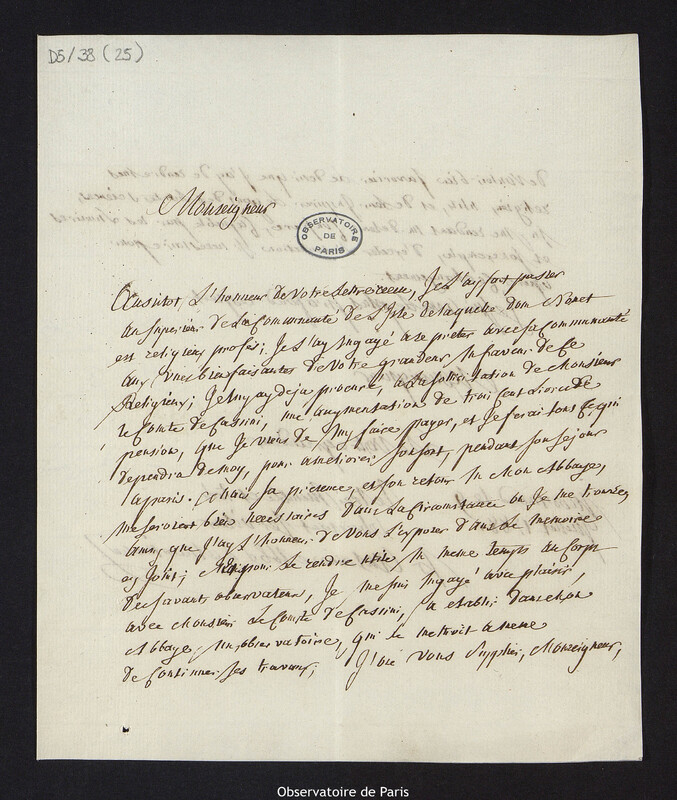 D5/38 (25)
Monseigneur
OBSERVATOIRE
DE
PARIS
Aussitot L'honneur de Votre Lettre recue, Je L'ay fait passer
au Superieur de La Communauté de L'Isle de laquelle dom Nouet
est religieux profés; Je L'ay Engagé a se preter avec sa Communauté
aux Vues bien faisantes de Votre grandeur En faveur de Ce
Religieux; Je luy ay deja procuré, a la sollicitation de Monsieur
le Comte de Cassini, une augmentation de trois Cent Livres de
pension, que Je Viens de luy faire payer, et Je ferai tout Ce qui
dependra de moy, pour ameliorer son sort, pendant son sejour
a paris. Mais sa presence, et son retour En Mon Abbaye,
me seroient bien necessaires dans La Circonstance ou Je me trouve,
ainsy que J'ay L'honneur de Vous L'exposer dans Le memoire
cy Joint; Mais pour Le rendre utile En meme temps au Corps
des savants observateurs, Je me suis Engagé avec plaisir,
avec Monsieur Le Comte de Cassini, a etablir dans Mon
Abbaye, un observatoire, qui Le mettroit a meme
de Continuer ses travaux; J'ose vous Supplier, Monseigneur,
Observatoire de Paris